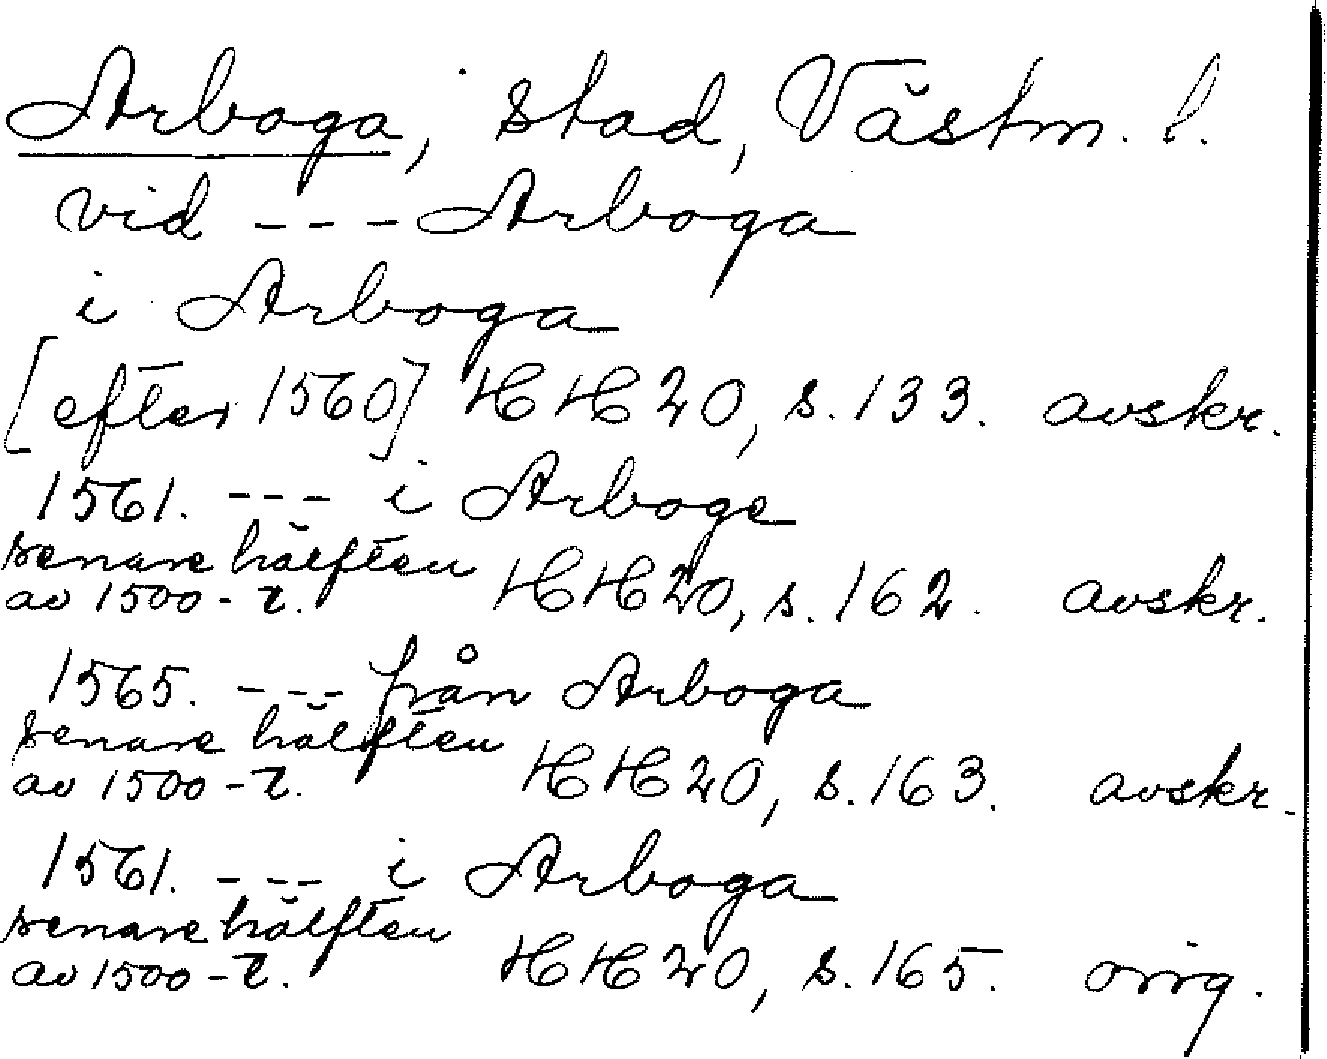 Arboga, stad, Västm. l.
vid --- Arboga
i Arboga
[efter 1560] HH 20, s. 133. avskr.
1561. --- i Arboge
senare hälften
av 1500-t. HH 20, s. 162. avskr.
1565. --- från Arboga
senare hälften
av 1500-t. HH 20, s. 163. avskr.
1561. --- i Arboga
senare hälften
av 1500-t. HH 20, s. 165. orig.